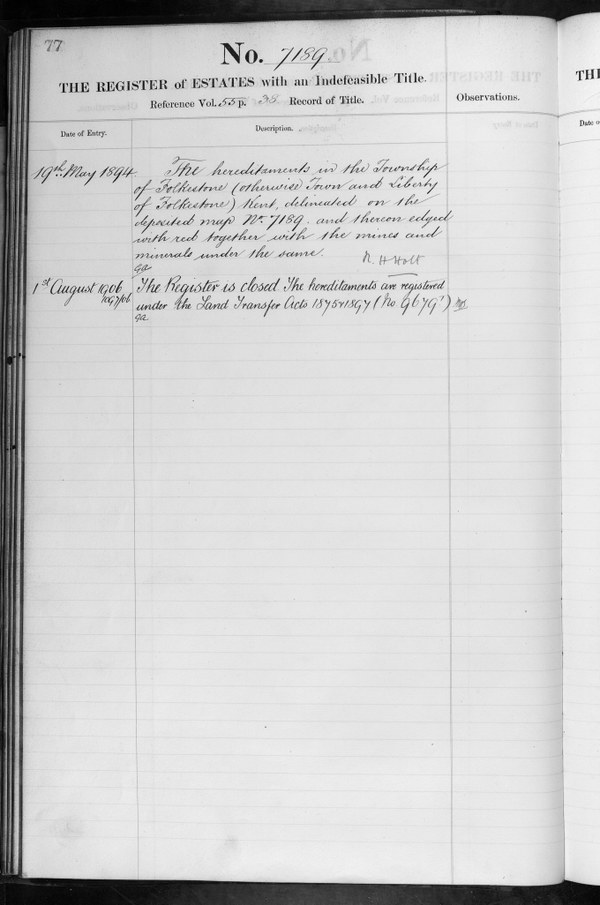 77
No. 7189.
THE REGISTER of ESTATES with an Indefeasible Title.
Reference Vol. 55 p. 38 Record of Title.
Observations.
Date of Entry.
Description.
19th May 1894.
The hereditaments in the Township
of Folkestone (otherwise Town and Liberty
of Folkestone) Kent, delineated on the
deposited map No. 7189. and thereon edged
with red together with the mines and
minerals under the same.
R. H. Holt
1st August 1906
The Register is closed The hereditaments are registered
under the Land Transfer Acts 1875 & 1897 (No 96791)
THE
Date o